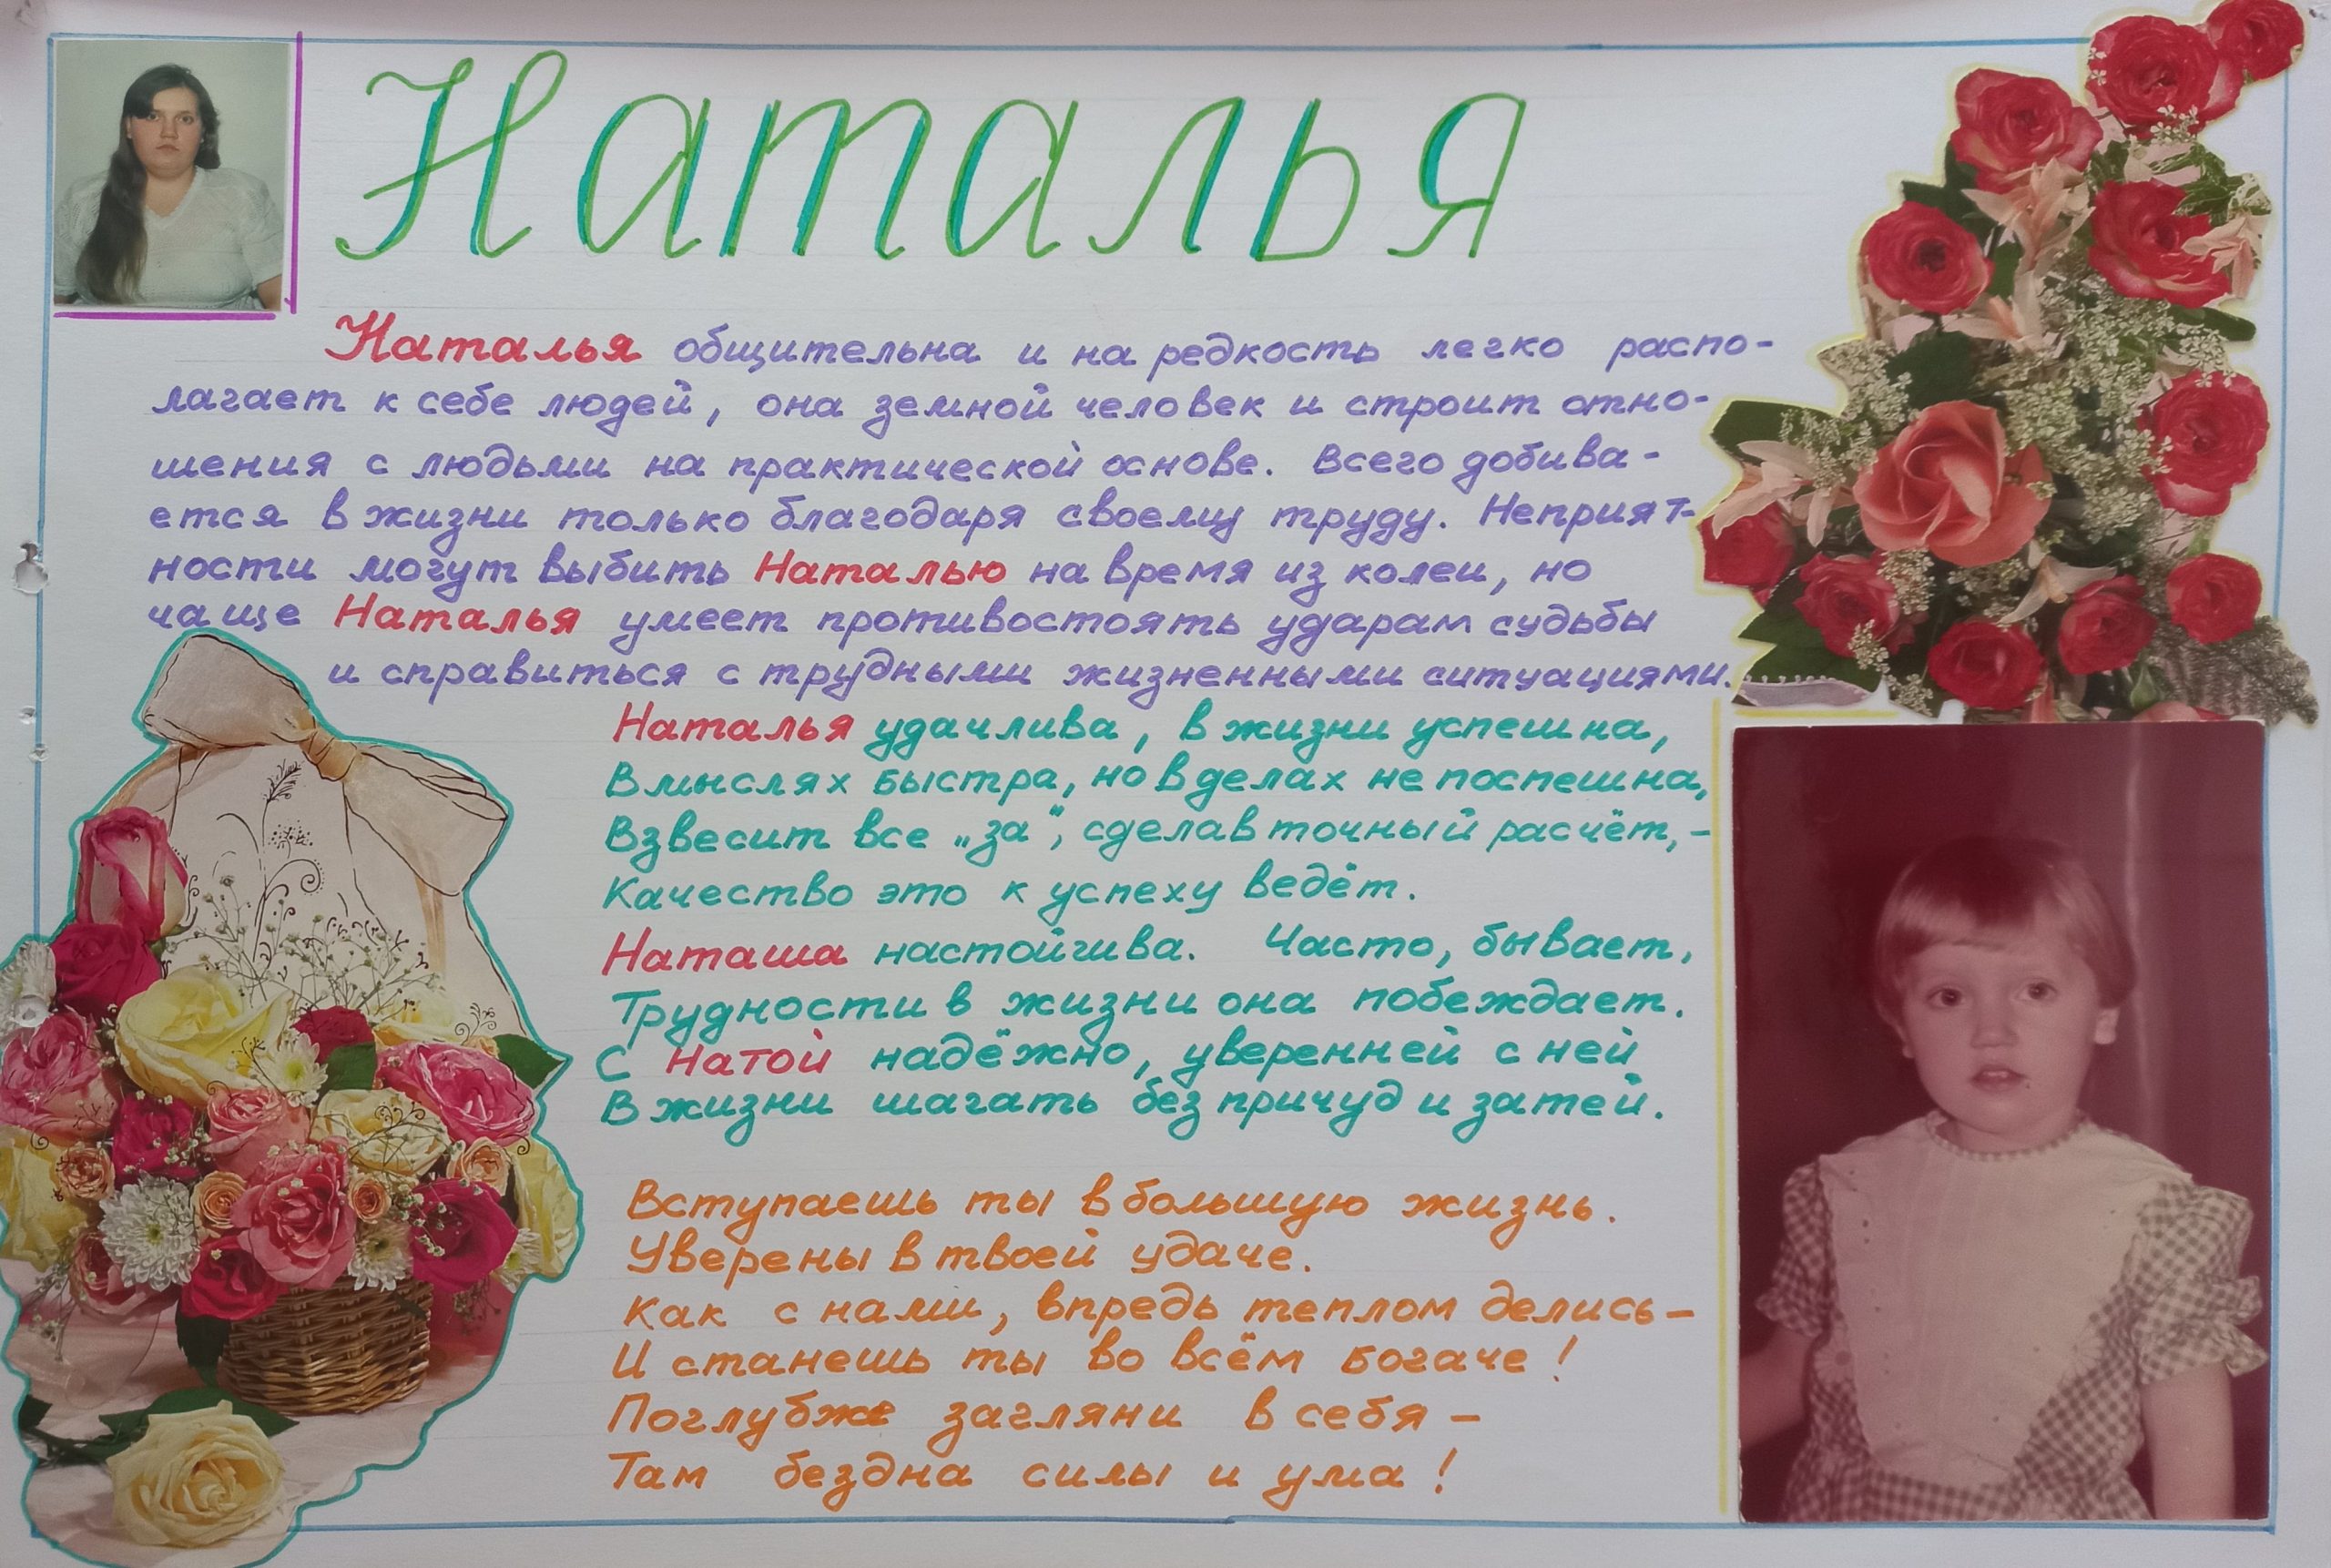 Наталья
Наталья общительна и на редкость легко распо-
лагает к себе людей, она земной человек и строит отно-
шения с людьми на практической основе. Всего добива-
ется в жизни только благодаря своему труду. Неприят-
ности могут выбить Наталью на время из колеи, но
чаще Наталья умеет противостоять ударам судьбы
и справиться с трудными жизненными ситуациями.
Наталья удачлива, в жизни успешна,
В мыслях быстра, но в делах не поспешна,
Взвесит все „за", сделав точный расчёт, -
Качество это к успеху ведёт.
Наташа настойчива. Часто, бывает,
Трудности в жизни она побеждает.
С Натой надёжно, уверенней с ней
В жизни шагать без причуд и затей.
Вступаешь ты в большую жизнь.
Уверены в твоей удаче.
Как с нами, впредь теплом делись –
И станешь ты во всём богаче!
Поглубже загляни в себя –
Там бездна силы и ума!